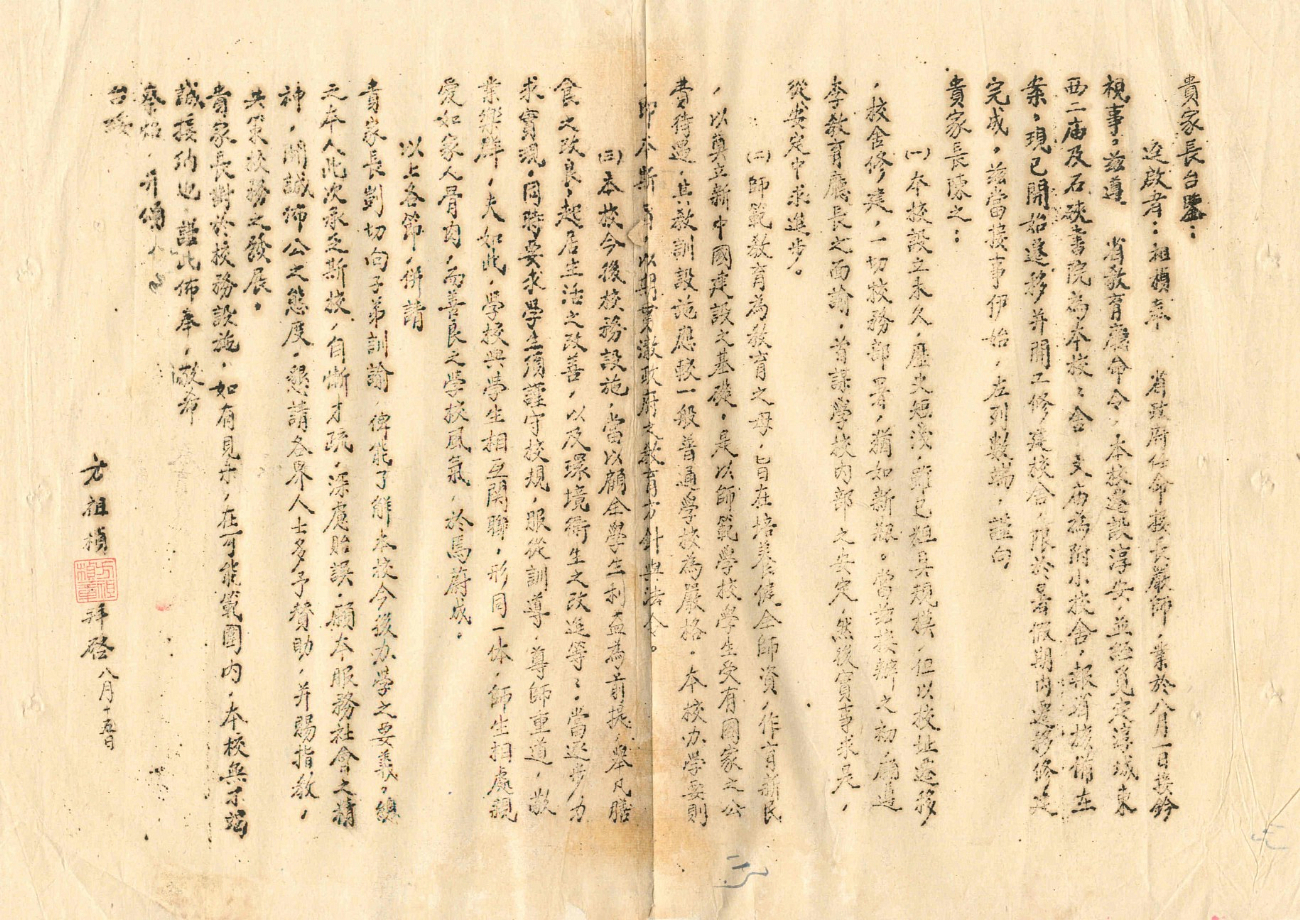 貴家長台鑒：
逕啟者：祖楨奉　省政府任命接長嚴師，業於八月一日接鈐
視事。茲遵　省教育廳命令，本校遷設淳安，並經覓定淳城東
西二庙及石硤書院為本校之舍　文庙為附小校舍，報省核備在
案，現已開始遷移并開工修建校舍，限於暑假期內遷移修建
完成，茲當接事伊始，左列數端，謹向
貴家長陳之：
(一)本校設立未久，歷史短淺，雖已粗具規模，但以校址遷移
，校舍修建，一切校務部署，猶如新辦。當茲接辦之初，
李教育廳長之面諭，首謀學校內部之安定，然後實事求是，
從安定中求進步。
(二)師範教育為教育之母，旨在培養健全師資，作育新民
，以奠立新中國建設之基礎，是以師範學校學生受有國家之公
費待遇，其教訓設施應較一般普通學校為嚴格，本校办學要則
即本斯旨，以期貫澈政府之教育方針與法令。
(三)本校今後校務設施，當以顧全學生利益為前提，舉凡膳
食之改良，起居生活之改善，以及環境衛生之改進等等，當逐步力
求實現，同時要求學生須謹守校規，服從訓導，尊師重道，敬
業樂群，夫如此，學校與學生相互關聯，形同一体，師生相處親
愛如家人骨肉，而善良之學校風氣，於焉蔚成。
以上各節，併請
貴家長剴切向子弟訓諭，俾能了解本校今後办學之要義，總
之本人此次承乏斯校，自慚才疏，深虞貽誤，願本服務社會之精
神，開誠佈公之態度，懇請各界人士多予贊助，并賜指教，
共策校務之發展。
貴家長對於校務設施，如有見示，在可能範圍內，本校無不竭
誠接納也　謹此佈奉，敬希
察照，并頌
台綏
方祖楨
拜啓 八月十五日